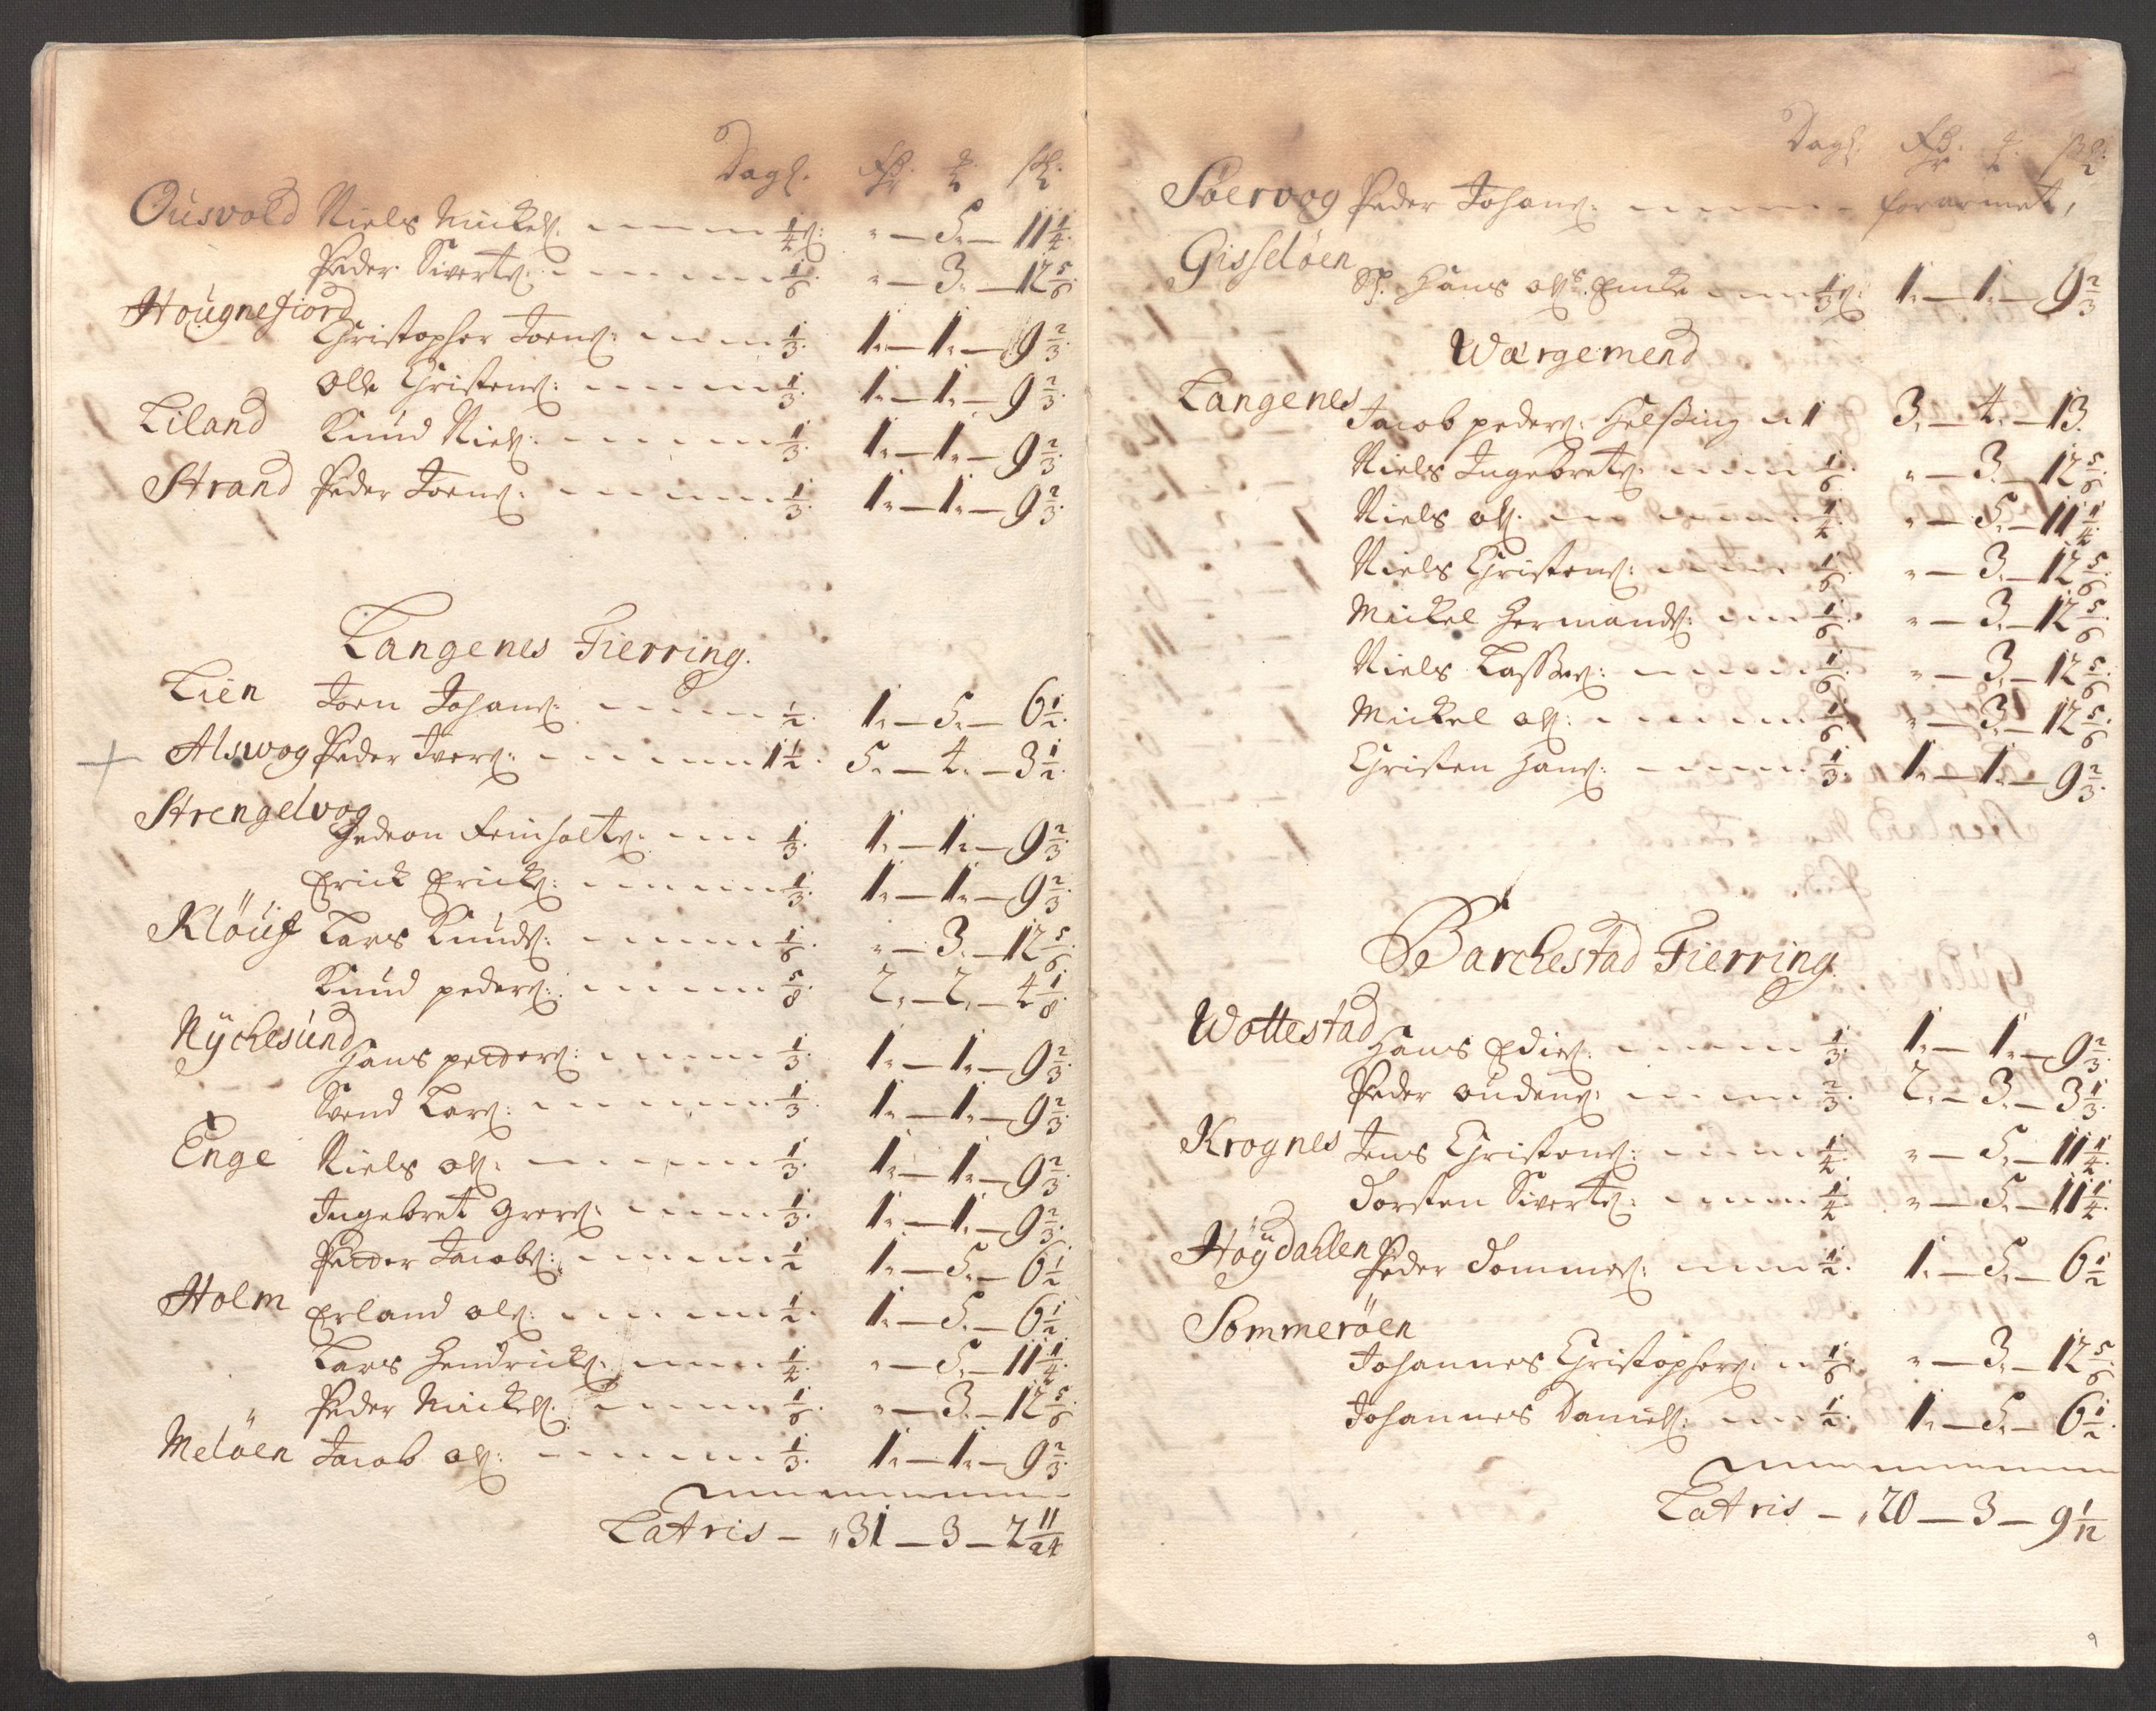 Dagl.
Ousvold Niels Mickels: ¼ " — 5. — 11¼.
Peder Siverts: ⅙. " — 3. — 12⅚
Hougnefiord
Christopher Joens: ⅓. 1. — 1. — 9⅔
Olle Christens: ⅓. 1. — 1. — 9⅔
Liland Knud Niels: ⅓. 1. — 1. — 9⅔
Strand Peder Joens: ⅓. 1. — 1. — 9⅔
Langenes Fierring.
Lien Joen Johans: ½. 1. — 5. — 6½.
Alswog Peder Ivers: 1½. 5. — 4. — 3½.
Strengelvog
Gedeon Reinholts: ⅓. 1. — 1. — 9⅔
Erick Ericks: ⅓. 1. — 1. — 9⅔
Klöuf Lars Knuds: ⅙. " — 3. — 12⅚
Knud peders: ⅝. 2. — 2. — 4⅛.
Nÿchesund
Hans peders: ⅓. 1. — 1. — 9⅔
Svend Lars: ⅓. 1. — 1. — 9⅔
Enge Niels ols: ⅓. 1. — 1. — 9⅔
Ingebret Grers: ⅓. 1. — 1. — 9⅔
Peder Jacobs: ½ 1. — 5. — 6½
Holm Erland ols: ½. 1. — 5. — 6½
Lars Hendricks: ¼. " — 5. — 11¼.
Peder Mickels: ⅙. " — 3. — 12⅚
Melöen Jacob ols: ⅓. 1. — 1. — 9⅔
Latris — 31 — 3 — 2 11/24
Dagl.
Söervog Peder Johans: forarmet,
Gisselöen
Sr. Hans ols: ⅓ 1. — 1. — 9⅔
Wærgemend
Langenes
Jacob peders: Helssing 1 3. — 4. — 13.
Niels Ingebrets: ⅙. " — 3. — 12⅚
Niels ols: ¼. " — 5. — 11¼.
Niels Christens: ⅙. " — 3. — 12⅚
Mickel Hermands: ⅙. " — 3. — 12⅚
Niels Lasses: ⅙. " — 3. — 12⅚
Mickel ols: ⅙ " — 3. — 12⅚
Christen Hans: ⅓. 1. — 1. — 9⅔
Barchestad Fierring.
Wottestad
Hans Edis: ⅓. 1. — 1. — 9⅔
Peder oudens: ⅔. 2. — 3. — 3⅓.
Krognes Jens Christens: ¼ " — 5. — 11¼.
Torsten Siverts: ¼ " — 5. — 11¼.
Höÿdahlen
Peder Tommes: ½. 1. — 5. — 6½
Sommeröen
Johannes Christophers: ⅙. " — 3. — 12⅚
Johannes Daniels: ½. 1. — 5. — 6½.
Latris — 20 — 3 — 9 1/12
9